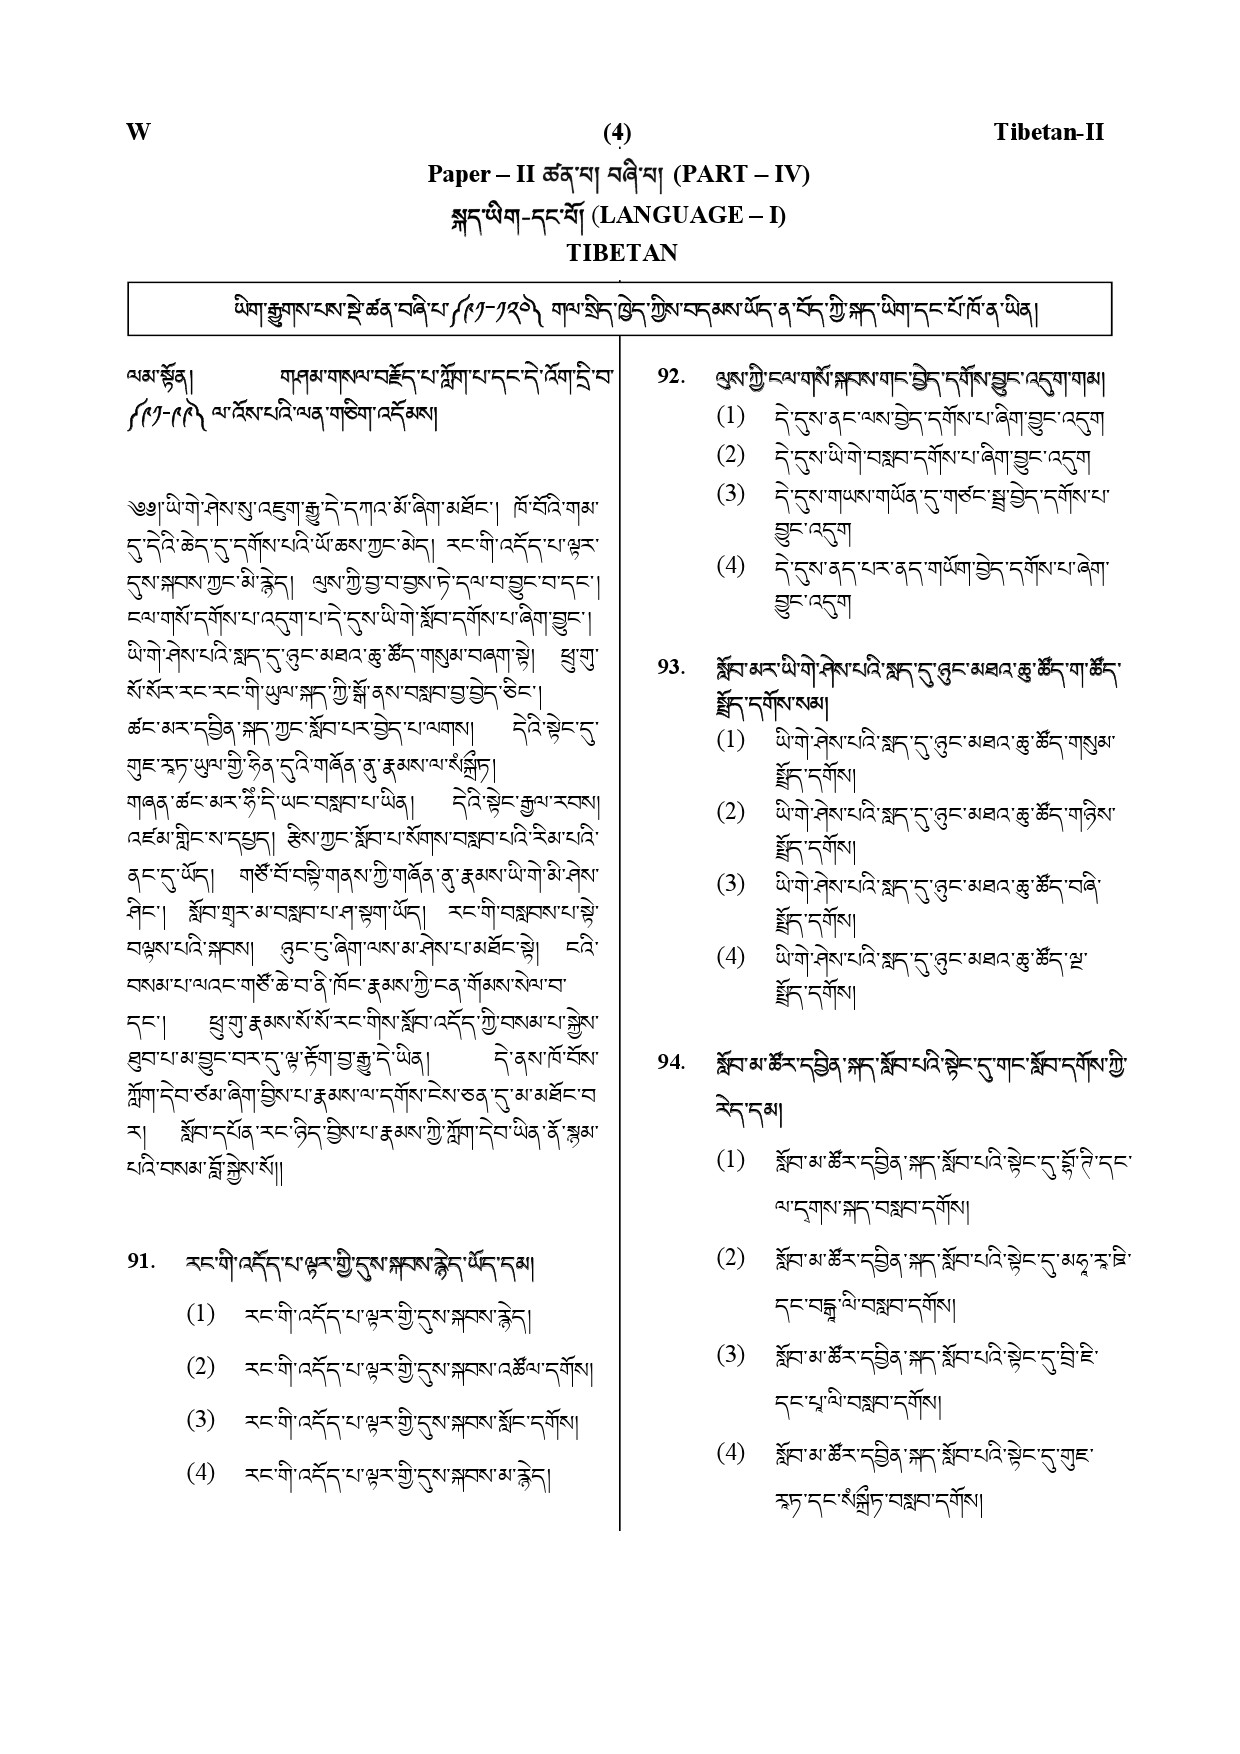 W (4) Tibetan-II
Paper – II ཚན་པ། བཞི་པ། (PART – IV)
སྐད་ཡིག-དང་པོ། (LANGUAGE – I)
TIBETAN
ཡིག་རྒྱུགས་པས་སྡེ་ཚན་བཞི་པ་༼༩༡-༡༢༠༽ གལ་སྲིད་ཁྱེད་ཀྱིས་བདམས་ཡོད་ན་བོད་ཀྱི་སྐད་ཡིག་དང་པོ་ཁོ་ན་ཡིན།
ལམ་སྟོན། གཤམ་གསལ་བརྗོད་པ་ཀློག་པ་དང་དེ་འོག་དྲི་བ་
༼༩༡-༩༩༽ ལ་འོས་པའི་ལན་གཅིག་འདོམས།
༄༅།་ཡི་གེ་ཤེས་སུ་འཇུག་རྒྱུ་དེ་དཀའ་མོ་ཞིག་མཐོང་། ཁོ་བོའི་གམ་
དུ་དེའི་ཆེད་དུ་དགོས་པའི་ཡོ་ཆས་ཀྱང་མེད། རང་གི་འདོད་པ་ལྟར་
དུས་སྐབས་ཀྱང་མི་རྙེད། ལུས་ཀྱི་བྱ་བ་བྱས་ཏེ་དལ་བ་བྱུང་བ་དང་།
ངལ་གསོ་དགོས་པ་འདུག་པ་དེ་དུས་ཡི་གེ་སློབ་དགོས་པ་ཞིག་བྱུང་།
ཡི་གེ་ཤེས་པའི་སླད་དུ་ཉུང་མཐའ་ཆུ་ཚོད་གསུམ་བཞག་སྟེ། ཕྲུ་གུ་
སོ་སོར་རང་རང་གི་ཡུལ་སྐད་ཀྱི་སྒོ་ནས་བསླབ་བྱ་བྱེད་ཅིང་།
ཚང་མར་དབྱིན་སྐད་ཀྱང་སློབ་པར་བྱེད་པ་ལགས། དེའི་སྟེང་དུ་
གུཇ་རཱཏ་ཡུལ་གྱི་ཧིན་དུའི་གཞོན་ནུ་རྣམས་ལ་སཾསྐྲྀཏ།
གཞན་ཚང་མར་ཧིཾ་དི་ཡང་བསླབ་པ་ཡིན། དེའི་སྟེང་རྒྱལ་རབས།
འཛམ་གླིང་ས་དཔྱད། རྩིས་ཀྱང་སློབ་པ་སོགས་བསླབ་པའི་རིམ་པའི་
ནང་དུ་ཡོད། གཙོ་བོ་བསྟི་གནས་ཀྱི་གཞོན་ནུ་རྣམས་ཡི་གེ་མི་ཤེས་
ཤིང་། སློབ་གྲྭར་མ་བསླབ་པ་ཤ་སྟག་ཡོད། རང་གི་བསླབས་པ་སྟེ་
བལྟས་པའི་སྐབས། ཉུང་ངུ་ཞིག་ལས་མ་ཤེས་པ་མཐོང་སྟེ། ངའི་
བསམ་པ་ལའང་གཙོ་ཆེ་བ་ནི་ཁོང་རྣམས་ཀྱི་ངན་གོམས་སེལ་བ་
དང་། ཕྲུ་གུ་རྣམས་སོ་སོ་རང་གིས་སློབ་འདོད་ཀྱི་བསམ་པ་སྐྱེས་
ཐུབ་པ་མ་བྱུང་བར་དུ་ལྟ་རྟོག་བྱ་རྒྱུ་དེ་ཡིན། དེ་ནས་ཁོ་བོས་
ཀློག་དེབ་ཙམ་ཞིག་བྱིས་པ་རྣམས་ལ་དགོས་ངེས་ཅན་དུ་མ་མཐོང་བ
ར། སློབ་དཔོན་རང་ཉིད་བྱིས་པ་རྣམས་ཀྱི་ཀློག་དེབ་ཡིན་ནོ་སྙམ་
པའི་བསམ་བློ་སྐྱེས་སོ།།
91. རང་གི་འདོད་པ་ལྟར་གྱི་དུས་སྐབས་རྙེད་ཡོད་དམ།
(1) རང་གི་འདོད་པ་ལྟར་གྱི་དུས་སྐབས་རྙེད།
(2) རང་གི་འདོད་པ་ལྟར་གྱི་དུས་སྐབས་འཚོལ་དགོས།
(3) རང་གི་འདོད་པ་ལྟར་གྱི་དུས་སྐབས་སློང་དགོས།
(4) རང་གི་འདོད་པ་ལྟར་གྱི་དུས་སྐབས་མ་རྙེད།
92. ལུས་ཀྱི་ངལ་གསོ་སྐབས་གང་བྱེད་དགོས་བྱུང་འདུག་གམ།
(1) དེ་དུས་ནང་ལས་བྱེད་དགོས་པ་ཞིག་བྱུང་འདུག
(2) དེ་དུས་ཡི་གེ་བསླབ་དགོས་པ་ཞིག་བྱུང་འདུག
(3) དེ་དུས་གཡས་གཡོན་དུ་གཙང་སྦྲ་བྱེད་དགོས་པ་
བྱུང་འདུག
(4) དེ་དུས་ནད་པར་ནད་གཡོག་བྱེད་དགོས་པ་ཞེག་
བྱུང་འདུག
93. སློབ་མར་ཡི་གེ་ཤེས་པའི་སླད་དུ་ཉུང་མཐའ་ཆུ་ཚོད་ག་ཚོད་
སྤྲོད་དགོས་སམ།
(1) ཡི་གེ་ཤེས་པའི་སླད་དུ་ཉུང་མཐའ་ཆུ་ཚོད་གསུམ་
སྤྲོད་དགོས།
(2) ཡི་གེ་ཤེས་པའི་སླད་དུ་ཉུང་མཐའ་ཆུ་ཚོད་གཉིས་
སྤྲོད་དགོས།
(3) ཡི་གེ་ཤེས་པའི་སླད་དུ་ཉུང་མཐའ་ཆུ་ཚོད་བཞི་
སྤྲོད་དགོས།
(4) ཡི་གེ་ཤེས་པའི་སླད་དུ་ཉུང་མཐའ་ཆུ་ཚོད་ལྔ་
སྤྲོད་དགོས།
94. སློབ་མ་ཚོར་དབྱིན་སྐད་སློབ་པའི་སྟེང་དུ་གང་སློབ་དགོས་ཀྱི་
རེད་དམ།
(1) སློབ་མ་ཚོར་དབྱིན་སྐད་སློབ་པའི་སྟེང་དུ་བྷོ་ཊི་དང་
ལ་དྭགས་སྐད་བསླབ་དགོས།
(2) སློབ་མ་ཚོར་དབྱིན་སྐད་སློབ་པའི་སྟེང་དུ་མཧཱ་རཱ་ཥི་
དང་བངྒཱ་ལི་བསླབ་དགོས།
(3) སློབ་མ་ཚོར་དབྱིན་སྐད་སློབ་པའི་སྟེང་དུ་བྲི་ཇི་
དང་པཱ་ལི་བསླབ་དགོས།
(4) སློབ་མ་ཚོར་དབྱིན་སྐད་སློབ་པའི་སྟེང་དུ་གུཇ་
རཱཏ་དང་སཾསྐྲྀཏ་བསླབ་དགོས།